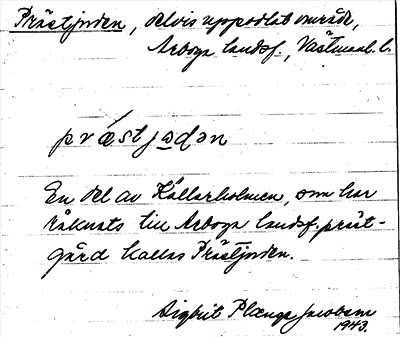 Prästjorden, delvis uppodlat område,
Arboga landsf., Västmanl. l.
præ´stjɷdən
En del av Källarholmen, som har
räknats till Arboga landsf. präst-
gård kallas Prästjorden.
Sigbrit Plænge Jacobson
1943.